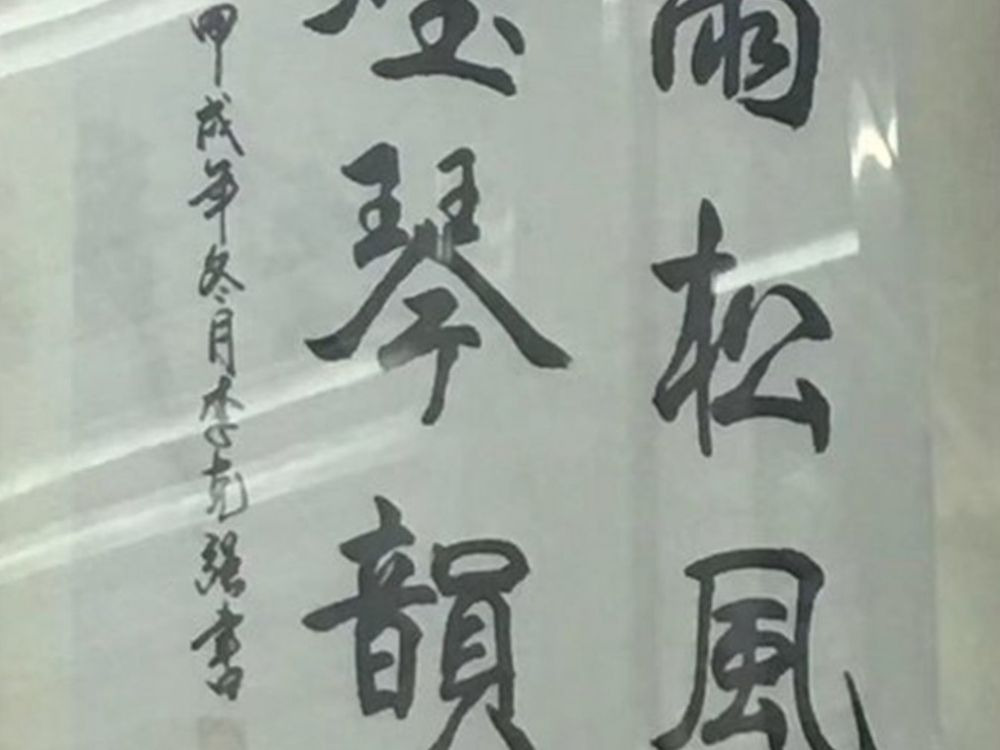 雨松風
琴韻
甲戌年冬月李克強書